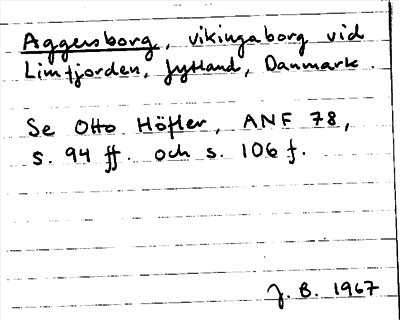 Aggersborg, vikingaborg vid
Limfjorden, Jylland, Danmark.
Se Otto Höfler, ANF 78,
s. 94 ff. och s. 106 f.
J. B. 1967